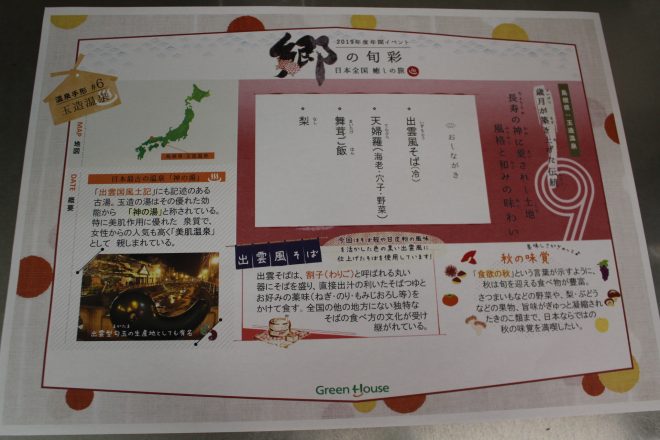 2019年度年間イベント
郷の旬彩
日本全国 癒しの旅
温泉手形 #6
玉造温泉
MAP 地図
島根県・玉造温泉
DATE 概要
日本最古の温泉「神の湯」
「出雲国風土記」にも記述のある
古湯。玉造の湯はその優れた効
能から 「神の湯」と称されている。
特に美肌作用に優れた 泉質で、
女性からの人気も高く「美肌温泉」
として 親しまれている。
まがたま
出雲型勾玉の生産地としても有名
島根県・玉造温泉
歳月が築きあげた伝統
長寿の神に愛されし土地
風格と和みの味わい
9
おしながき
出雲風そば(冷)
天婦羅(海老・穴子・野菜)
舞茸ご飯
梨
出雲風そば
今回はそば殻や甘皮粉の風味
を活かした色の黒い出雲風に
仕上げたそばを使用しています!
出雲そばは、割子(わりご)と呼ばれる丸い
器にそばを盛り、直接出汁の利いたそばつゆと
お好みの薬味(ねぎ・のり・もみじおろし等)を
かけて食す。全国の他の地方にない独特な
そばの食べ方の文化が受け
継がれている。
秋の味覚
「食欲の秋」という言葉が示すように、
秋は旬を迎える食べ物が豊富。
さつまいもなどの野菜や、梨・ぶどう
などの果物、旨味がぎゅっと凝縮され
たきのこ類まで、日本ならではの
秋の味覚を満喫したい。
Green House